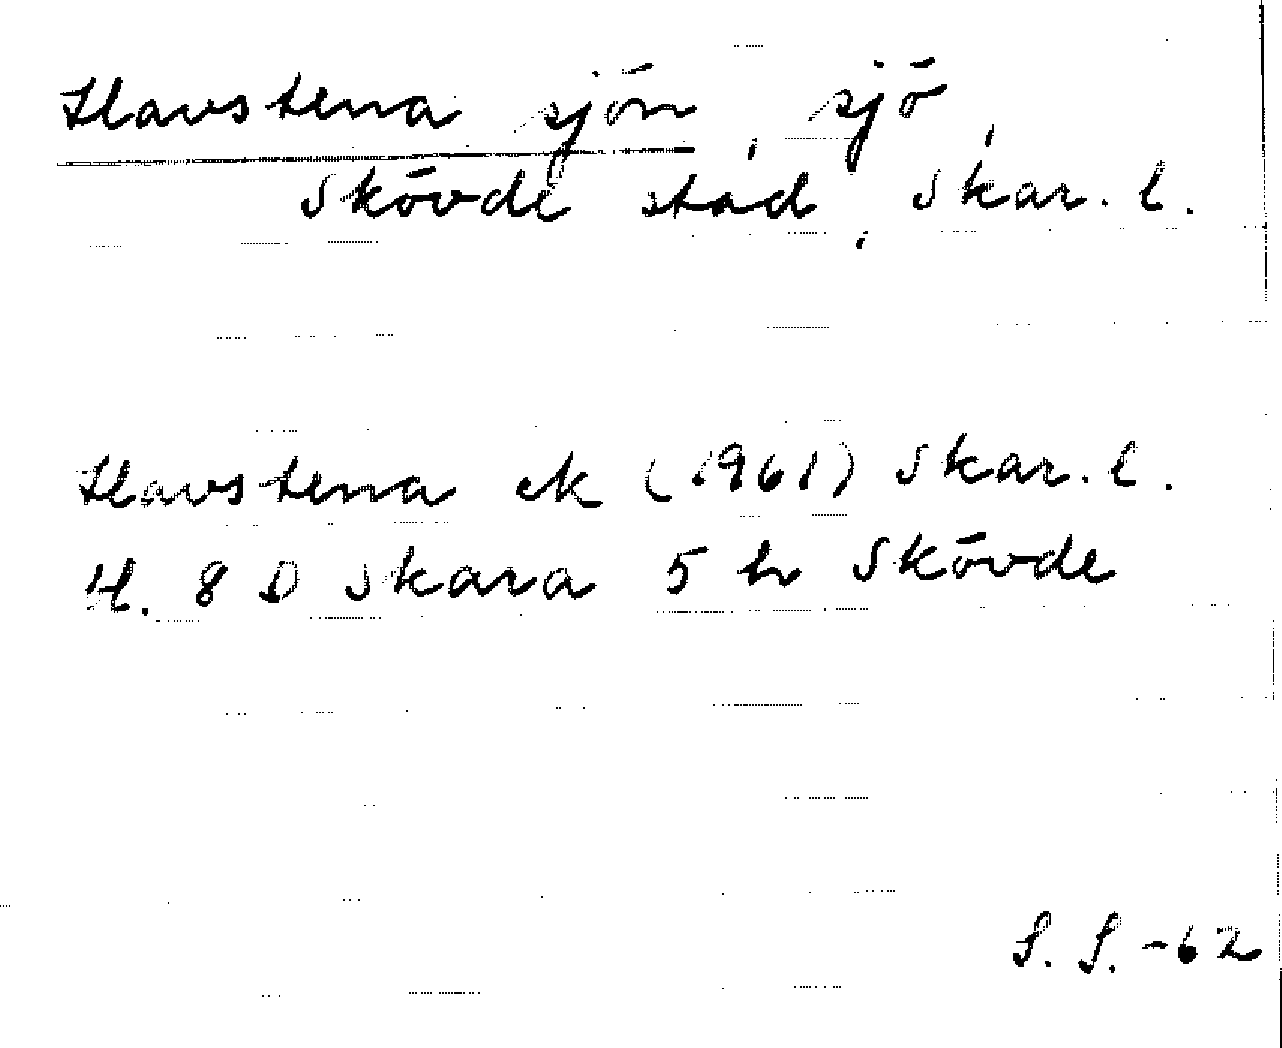 Havstena sjön, sjö,
Skövde stad, Skar. l.
Havstena ek (1961) Skar. l.
H. 8 D Skara 5 h Skövde
S. S. -62